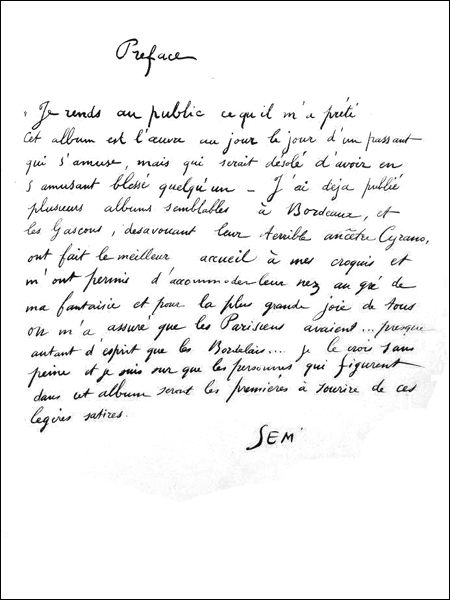 Preface
" Je rends au public ce qu'il m'a prêté
Cet album est l'œuvre au jour le jour d'un passant
qui s'amuse, mais qui serait désolé d'avoir en
s'amusant blessé quelqu'un – J'ai déja publié
plusieurs albums semblables à Bordeaux, et
les Gascons, desavouant leur terrible ancêtre Cyrano,
ont fait le meilleur accueil à mes croquis et
m'ont permis d'accommoder leur nez au gré de
ma fantaisie et pour la plus grande joie de tous
On m'a assuré que les Parisiens avaient... presque
autant d'esprit que les Bordelais.... je le crois sans
peine et je suis sur que les personnes qui figurent
dans cet album seront les premières à sourire de ces
legères satires.
SEM